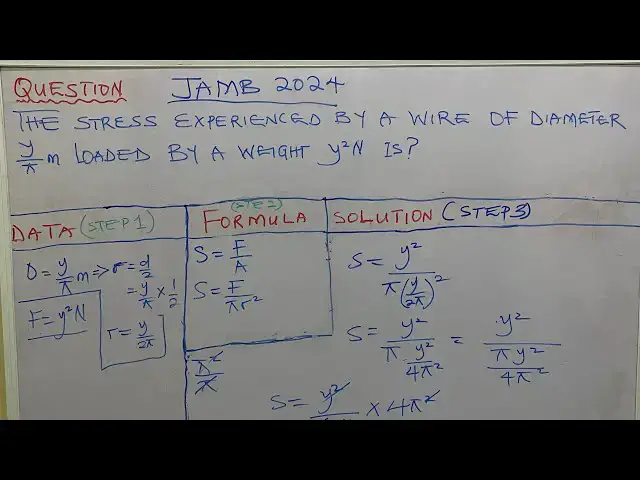 QUESTION JAMB 2024
THE STRESS EXPERIENCED BY A WIRE OF DIAMETER
y/π m LOADED BY A WEIGHT y²N IS?
DATA (STEP 1)
D = y/π m => r = d/2
= y/π × 1/2
F = y²N
r = y/2π
(STEP 2)
FORMULA
S = F/A
S = F/πr²
π²/π
SOLUTION (STEP 3)
S = y²/π(y/2π)²
S = y²/π y²/4π² = y²/πy²/4π²
S = y² × 4π²